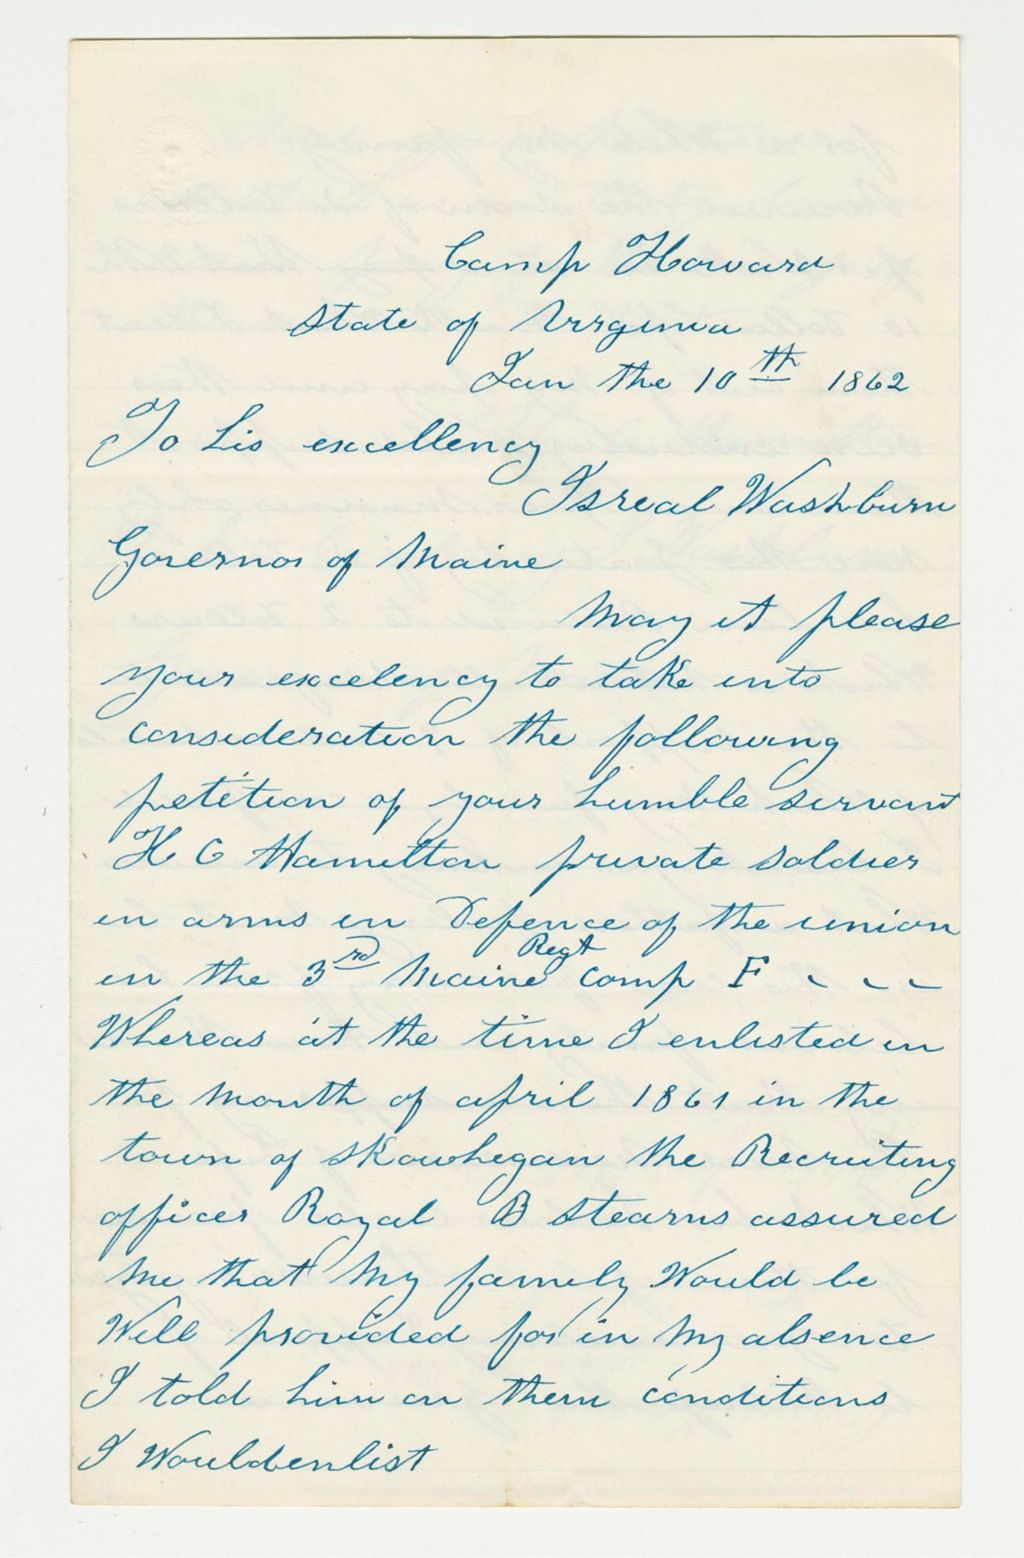 Camp Howard
State of Virginia
Jan the 10th 1862
To his excellency
Isreal Washburn
Governor of Maine
May it please
your excelency to take into
consideration the following
petition of your humble servant
H C Hamilton private soldier
in arms in Defence of the union
in the 3rd Maine Regt Comp F - - -
Whereas at the time I enlisted in
the month of april 1861 in the
town of Skowhegan the Recruiting
officer Royal B Stearns assured
me that My family Would be
Well provided for in My absence
I told him on them conditions
I Would enlist